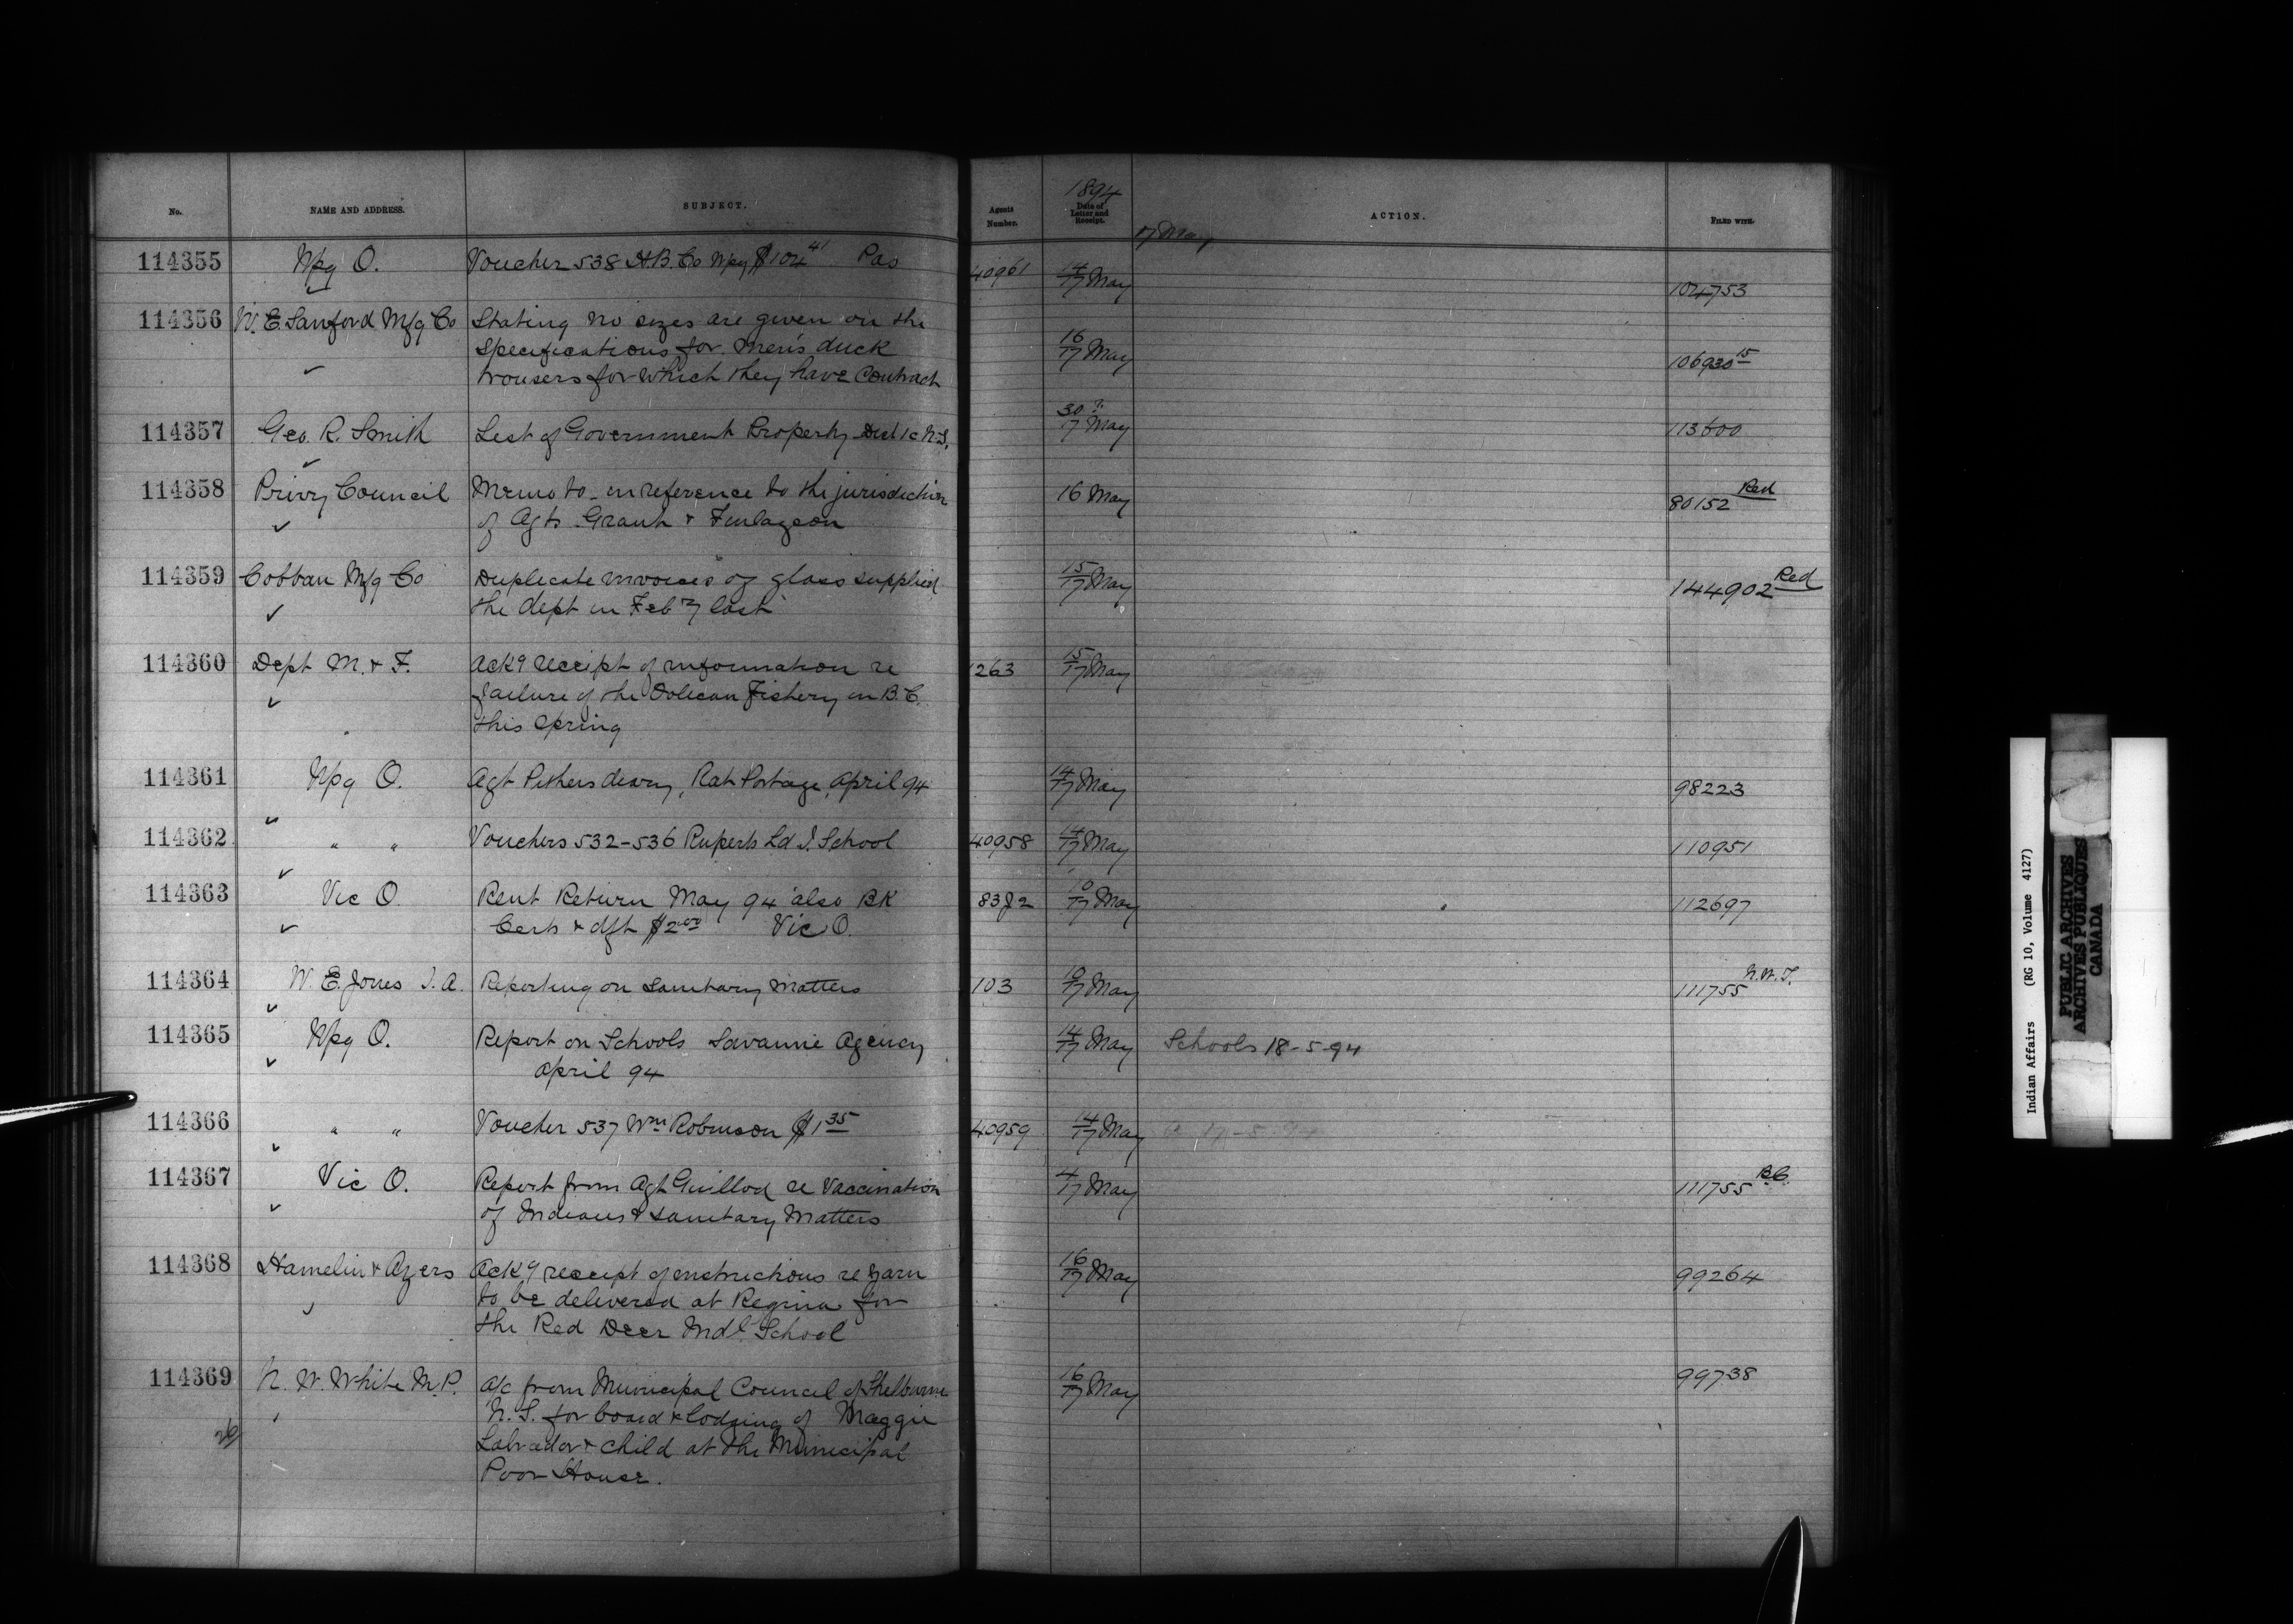 No. NAME AND ADDRESS. SUBJECT. Agents Number. 1894 Date of Letter and Receipt. ACTION. FILED WITH.
17 May
114355 Wpg O. Voucher 538 H.B. Co Wpg $104 41 Pas 40961 14/17 May 104753
114356 W. E. Sanford Mfg Co Stating no sizes are given on the 16/17 May 106930 15
specifications for Men's duck
trousers for which they have Contract
114357 Geo. R. Smith List of Government Property Dist 1c N.S. 30 ?/17 May 113600
114358 Privy Council Memo to - in reference to the jurisdiction 16 May 80152 Red
of Agts Grant & Finlayson
114359 Cobban Mfg Co Duplicate invoices of glass supplied 15/17 May 144902 Red
the dept in Feby last
114360 Dept M. & F. Ackg receipt of information re 1263 15/17 May
failure of the Oolican Fishery in B.C.
this Spring
114361 Wpg O. Agt Pithers diary, Rat Portage, April 94 14/17 May 98223
114362 " " Vouchers 532-536 Ruperts Ld I. School 40958 14/17 May 110951
114363 Vic O. Rent Return May 94 also BK 10/17 May 112697
Certs & dft $2.00 Vic O.
114364 W. E. Jones I. A. Reporting on Sanitary Matters 103 10/17 May 111755 N.W.T.
114365 Wpg O. Report on Schools Savanne Agency 14/17 May Schools 18-5-94
April 94
114366 " " Voucher 537 Wm Robinson $1 35 40959 14/17 May
114367 Vic O. Report from Agt Guillod re Vaccination 4/17 May 111755 B.C.
of Indians & Sanitary Matters
114368 Hamelin & Ayers Ackg receipt of instructions re yarn 16/17 May 99264
to be delivered at Regina for
the Red Deer Indl School
114369 N. W. White M.P. A/c from Municipal Council of Shelburne 16/17 May 99738
N.S. for board & lodging of Maggie
Labrador & child at the Municipal
Poor House.
Indian Affairs (RG 10, Volume 4127)
PUBLIC ARCHIVES
ARCHIVES PUBLIQUES
CANADA